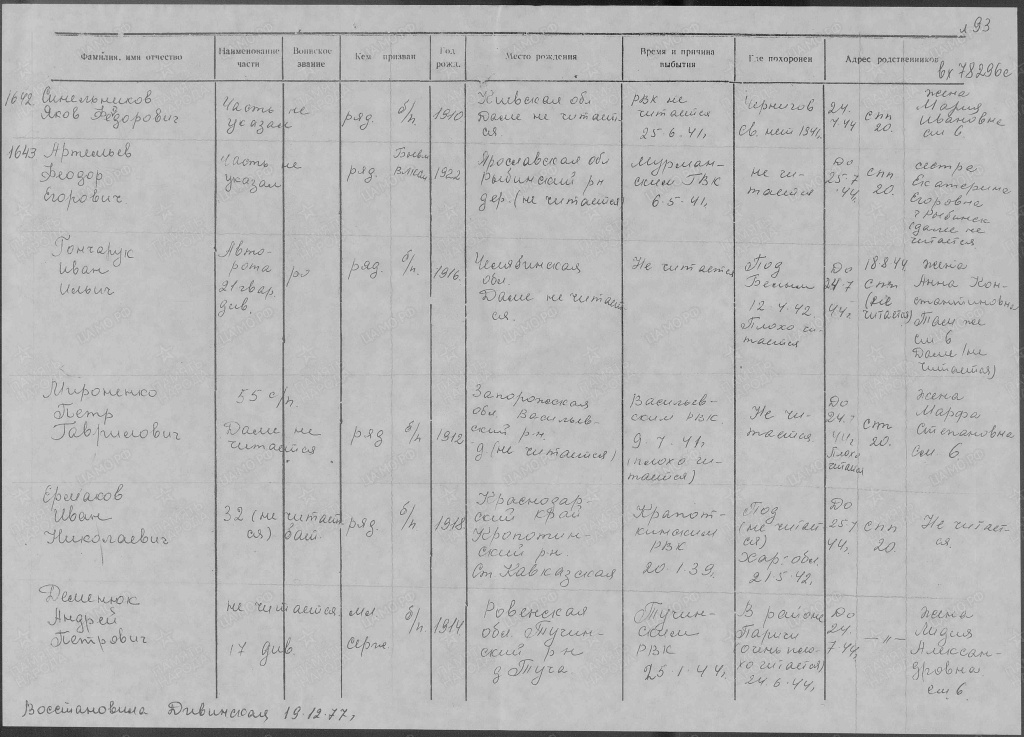 л 93
вх 78296с
Фамилия, имя отчество
Наименование части
Воинское звание
Кем призван
Год рожд.
Место рождения
Время и причина выбытия
Где похоронен
Адрес родственников
1642 Синельников
Яков Федорович
Часть не
указан
ряд.
б/п
1910
Киевская обл
Далее не читает-
ся.
РВК не
читается
25·6·41г.
Чернигов
Св. нет 1941г.
24.
7·44
спп
20.
жена
Мария
Ивановна
см 6.
1643 Артельев
Феодор
Егорович
Часть не
указан
ряд.
1922
Ярославская обл
Рыбинский рн
дер. (не читается)
Мурман-
ским ГВК
6·5·41г.
не чи-
тается
До
25·7
·44г.
спп
20.
сестра
Екатерина
Егоровна
г Рыбинск
(далее не
читается
Гончарук
Иван
Ильич
Авто-
рота
21 гвар.
див.
ро
ряд.
б/п.
1916
Челябинская
обл.
Далее не читает-
ся.
Не читается
Под
Белым
12·4·42.
Плохо чи-
тается
До
24·7
44г.
18·8·44
спп
(не
читается)
жена
Анна Кон-
стантиновна
Там же
см 6
Далее (не
читается)
Мироненко
Петр
Гаврилович
55 с/п
Далее не
читается
ряд
б/п
1912
Запорожская
обл. Васильев-
ский р-н.
д (не читается)
Васильев-
ским РВК
9·7·41г
(плохо чи-
тается)
Не чи-
тается
До
24·7
44г
Плохо
читается
спп
20.
жена
Марфа
Степановна
см 6
Ермаков
Иван
Николаевич
32 (не читает-
ся) бат.
ряд.
б/п
1918
Краснодар-
ский край
Кропотин-
ский рн.
Ст Кавказская
Крапот-
кинским
РВК
20·1·39г.
Под
(не читает-
ся)
Хар. обл.
21·5·42г.
До
25·7
44г.
спп
20.
Не читает-
ся.
Деменюк
Андрей
Петрович
не читается
17 див.
мл.
серж
б/п
1914
Ровенская
обл Тучин-
ский рн
д Туча
Тучин-
ским
РВК
25·1·44г.
В районе
Паричи
(очень пло-
хо читается)
24·6·44г.
До
24.
7·44г.
—"—
жена
Лидия
Алексан-
дровна
см 6.
Восстановила Дивинская 19·12·77г